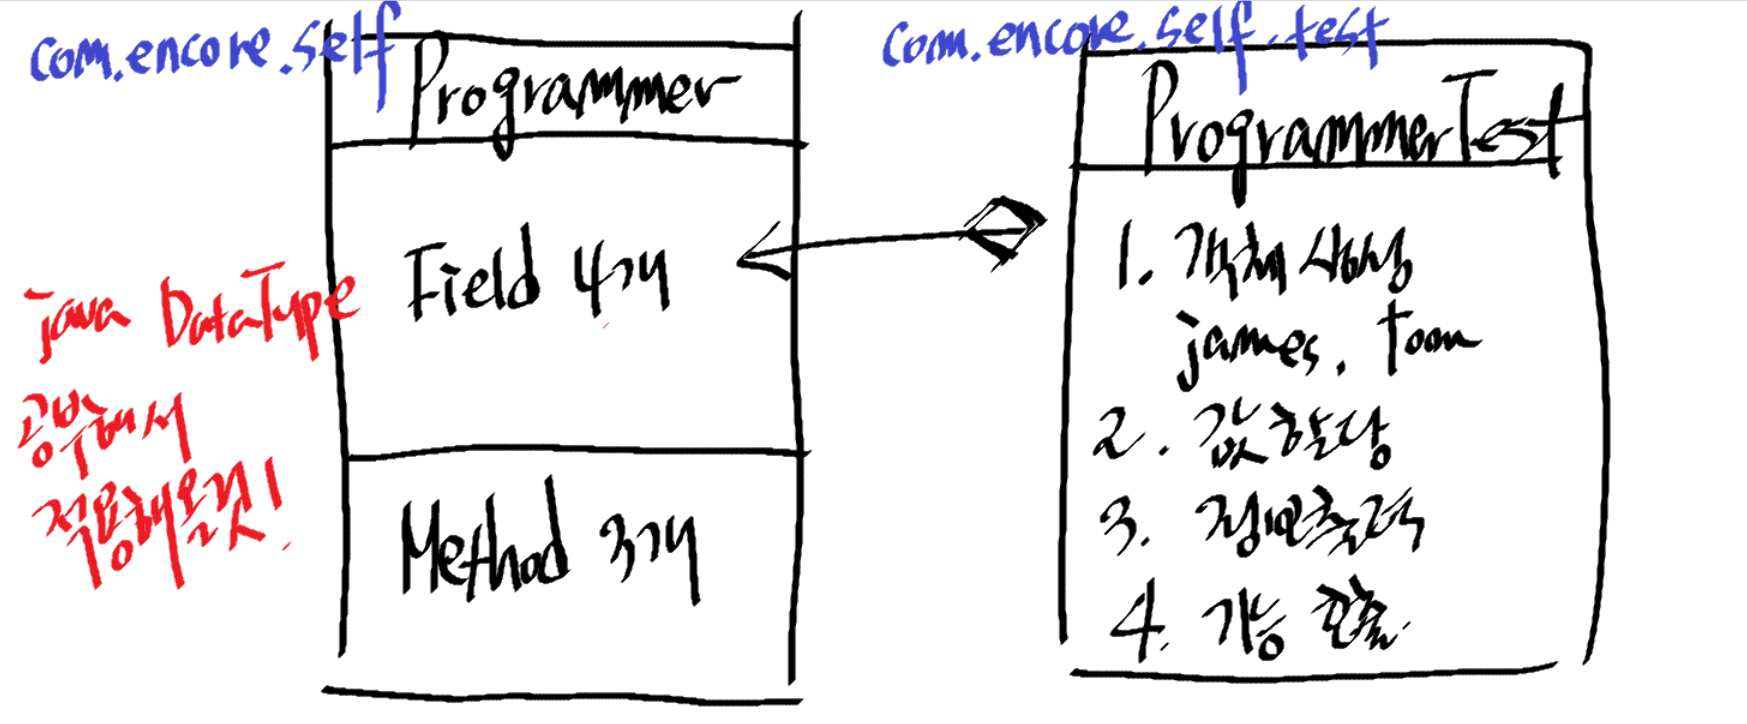 com.encore.self
Programmer
Field 4개
Method 3개
java DataType
공부해서
적용해올것!
com.encore.self.test
ProgrammerTest
1. 객체 생성
james, tom
2. 값할당
3. 정보출력
4. 기능 호출